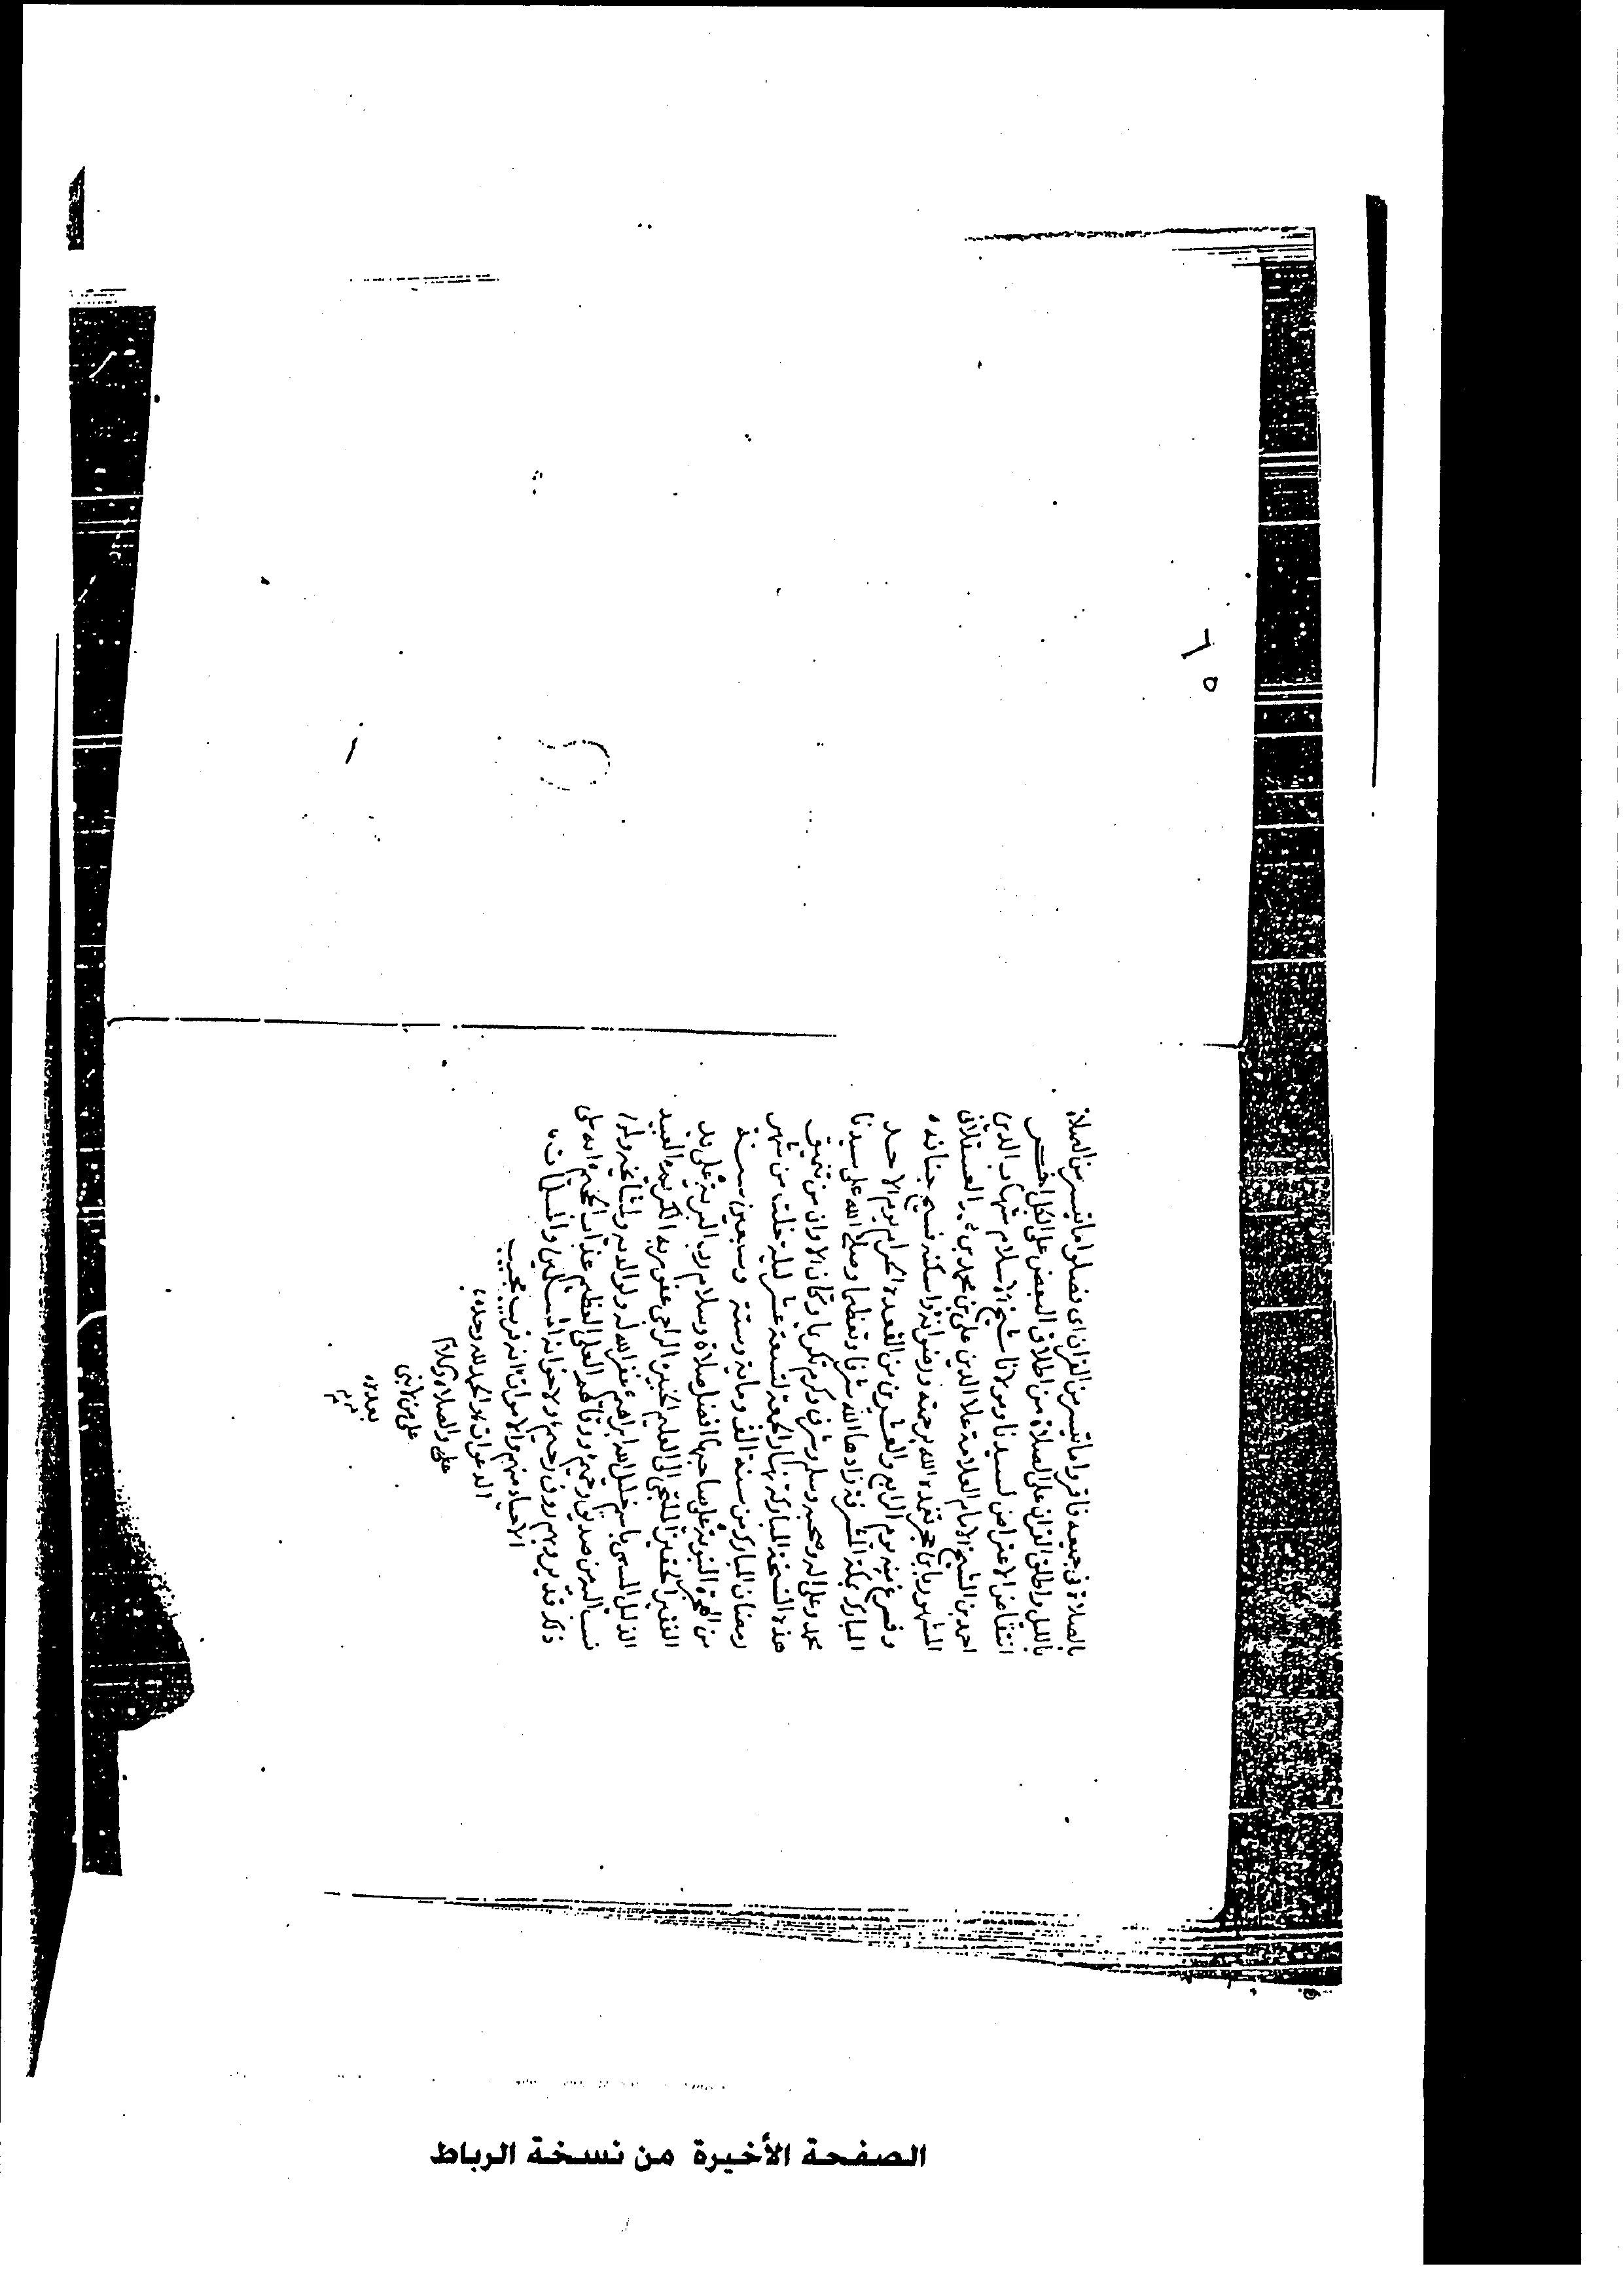 ٦٥
بالصلاة في جميعه فاقروا ما تيسر من القران اى فصلوا ما تيسر من الصلاة
بالليل واطلق القران على الصلاة من اطلاق البعض على الكل اخر
انتقاض الاعتراض لسيدنا ومولانا شيخ الاسلام شهاب الدين
احمد بن الشيخ الامام العلامة علا الدين على بن محمد بن العسقلانى
الشهير بابن حجر تغمده الله برحمته ورضوانه واسكنه فسيح جنانه
وفرغ منه يوم الرابع والعشرين من القعدة الحرام يوم الاحد
المبارك بمكة المشرفة زادها الله شرفا وتعظيما وصلى الله على سيدنا
محمد وعلى اله وصحبه وسلم وشرف وكرم وكان الاوان من تنميق
هذه النسخة المباركة نهار الجمعة لتسعة عشر ليلة خلت من شهر
رمضان المبارك من سنة الف وماية وستة وسبعين سنة
من الهجرة النبوية على صاحبها افضل صلاة وسلام رب البرية على يد
الفقير الحقير الملتجى الى العليم الخبير الراجى عفو ربه الكريم العبيد
الذليل المسمى باسم خليل الله ابراهيم غفر الله له ولوالديه ولمشايخه ولمن
نسب اليه من صديق وحميم ووقاهم العلى العظيم عذاب الجحيم انه على
ذلك قدير وبهم روف رحيم ولاخوانه المسلمين والمسلمات
الاحياء منهم والاموات انه قريب مجيب
الدعوات والحمد لله وحده
والصلاة والسلام
على من لا نبى
بعده
م م م
الصفحة الأخيرة من نسخة الرباط